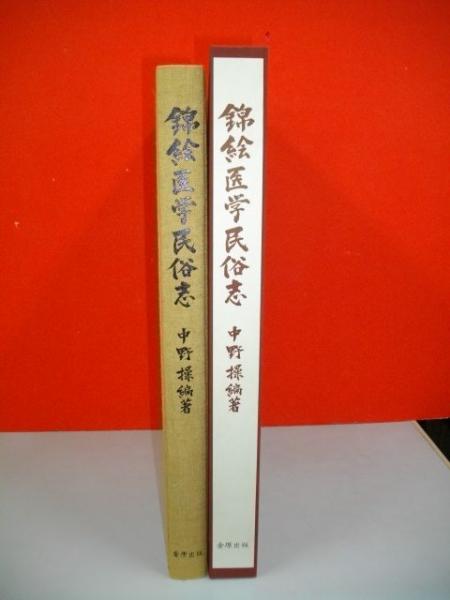 錦絵医学民俗志
中野操編著
金原出版
錦絵医学民俗志
中野操編著
金原出版